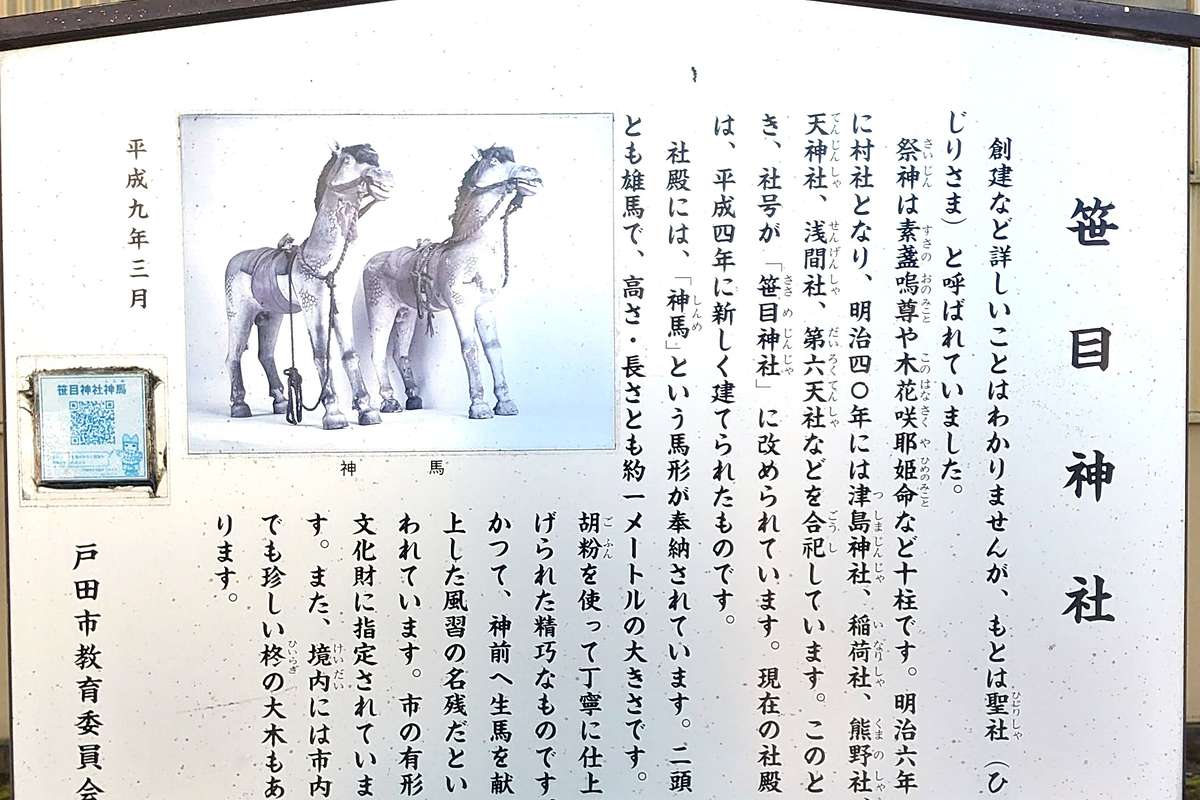 笹目神社
創建など詳しいことはわかりませんが、もとは聖社（ひ
じりさま）と呼ばれていました。
祭神は素盞嗚尊や木花咲耶姫命など十柱です。明治六年
に村社となり、明治四〇年には津島神社、稲荷社、熊野社、
天神社、浅間社、第六天社などを合祀しています。このと
き、社号が「笹目神社」に改められています。現在の社殿
は、平成四年に新しく建てられたものです。
社殿には、「神馬」という馬形が奉納されています。二頭
とも雄馬で、高さ・長さとも約一メートルの大きさです。
胡粉を使って丁寧に仕上
げられた精巧なものです。
かつて、神前へ生馬を献
上した風習の名残だとい
われています。市の有形
文化財に指定されていま
す。また、境内には市内
でも珍しい柊の大木もあ
ります。
神馬
平成九年三月
笹目神社神馬
戸田市教育委員会